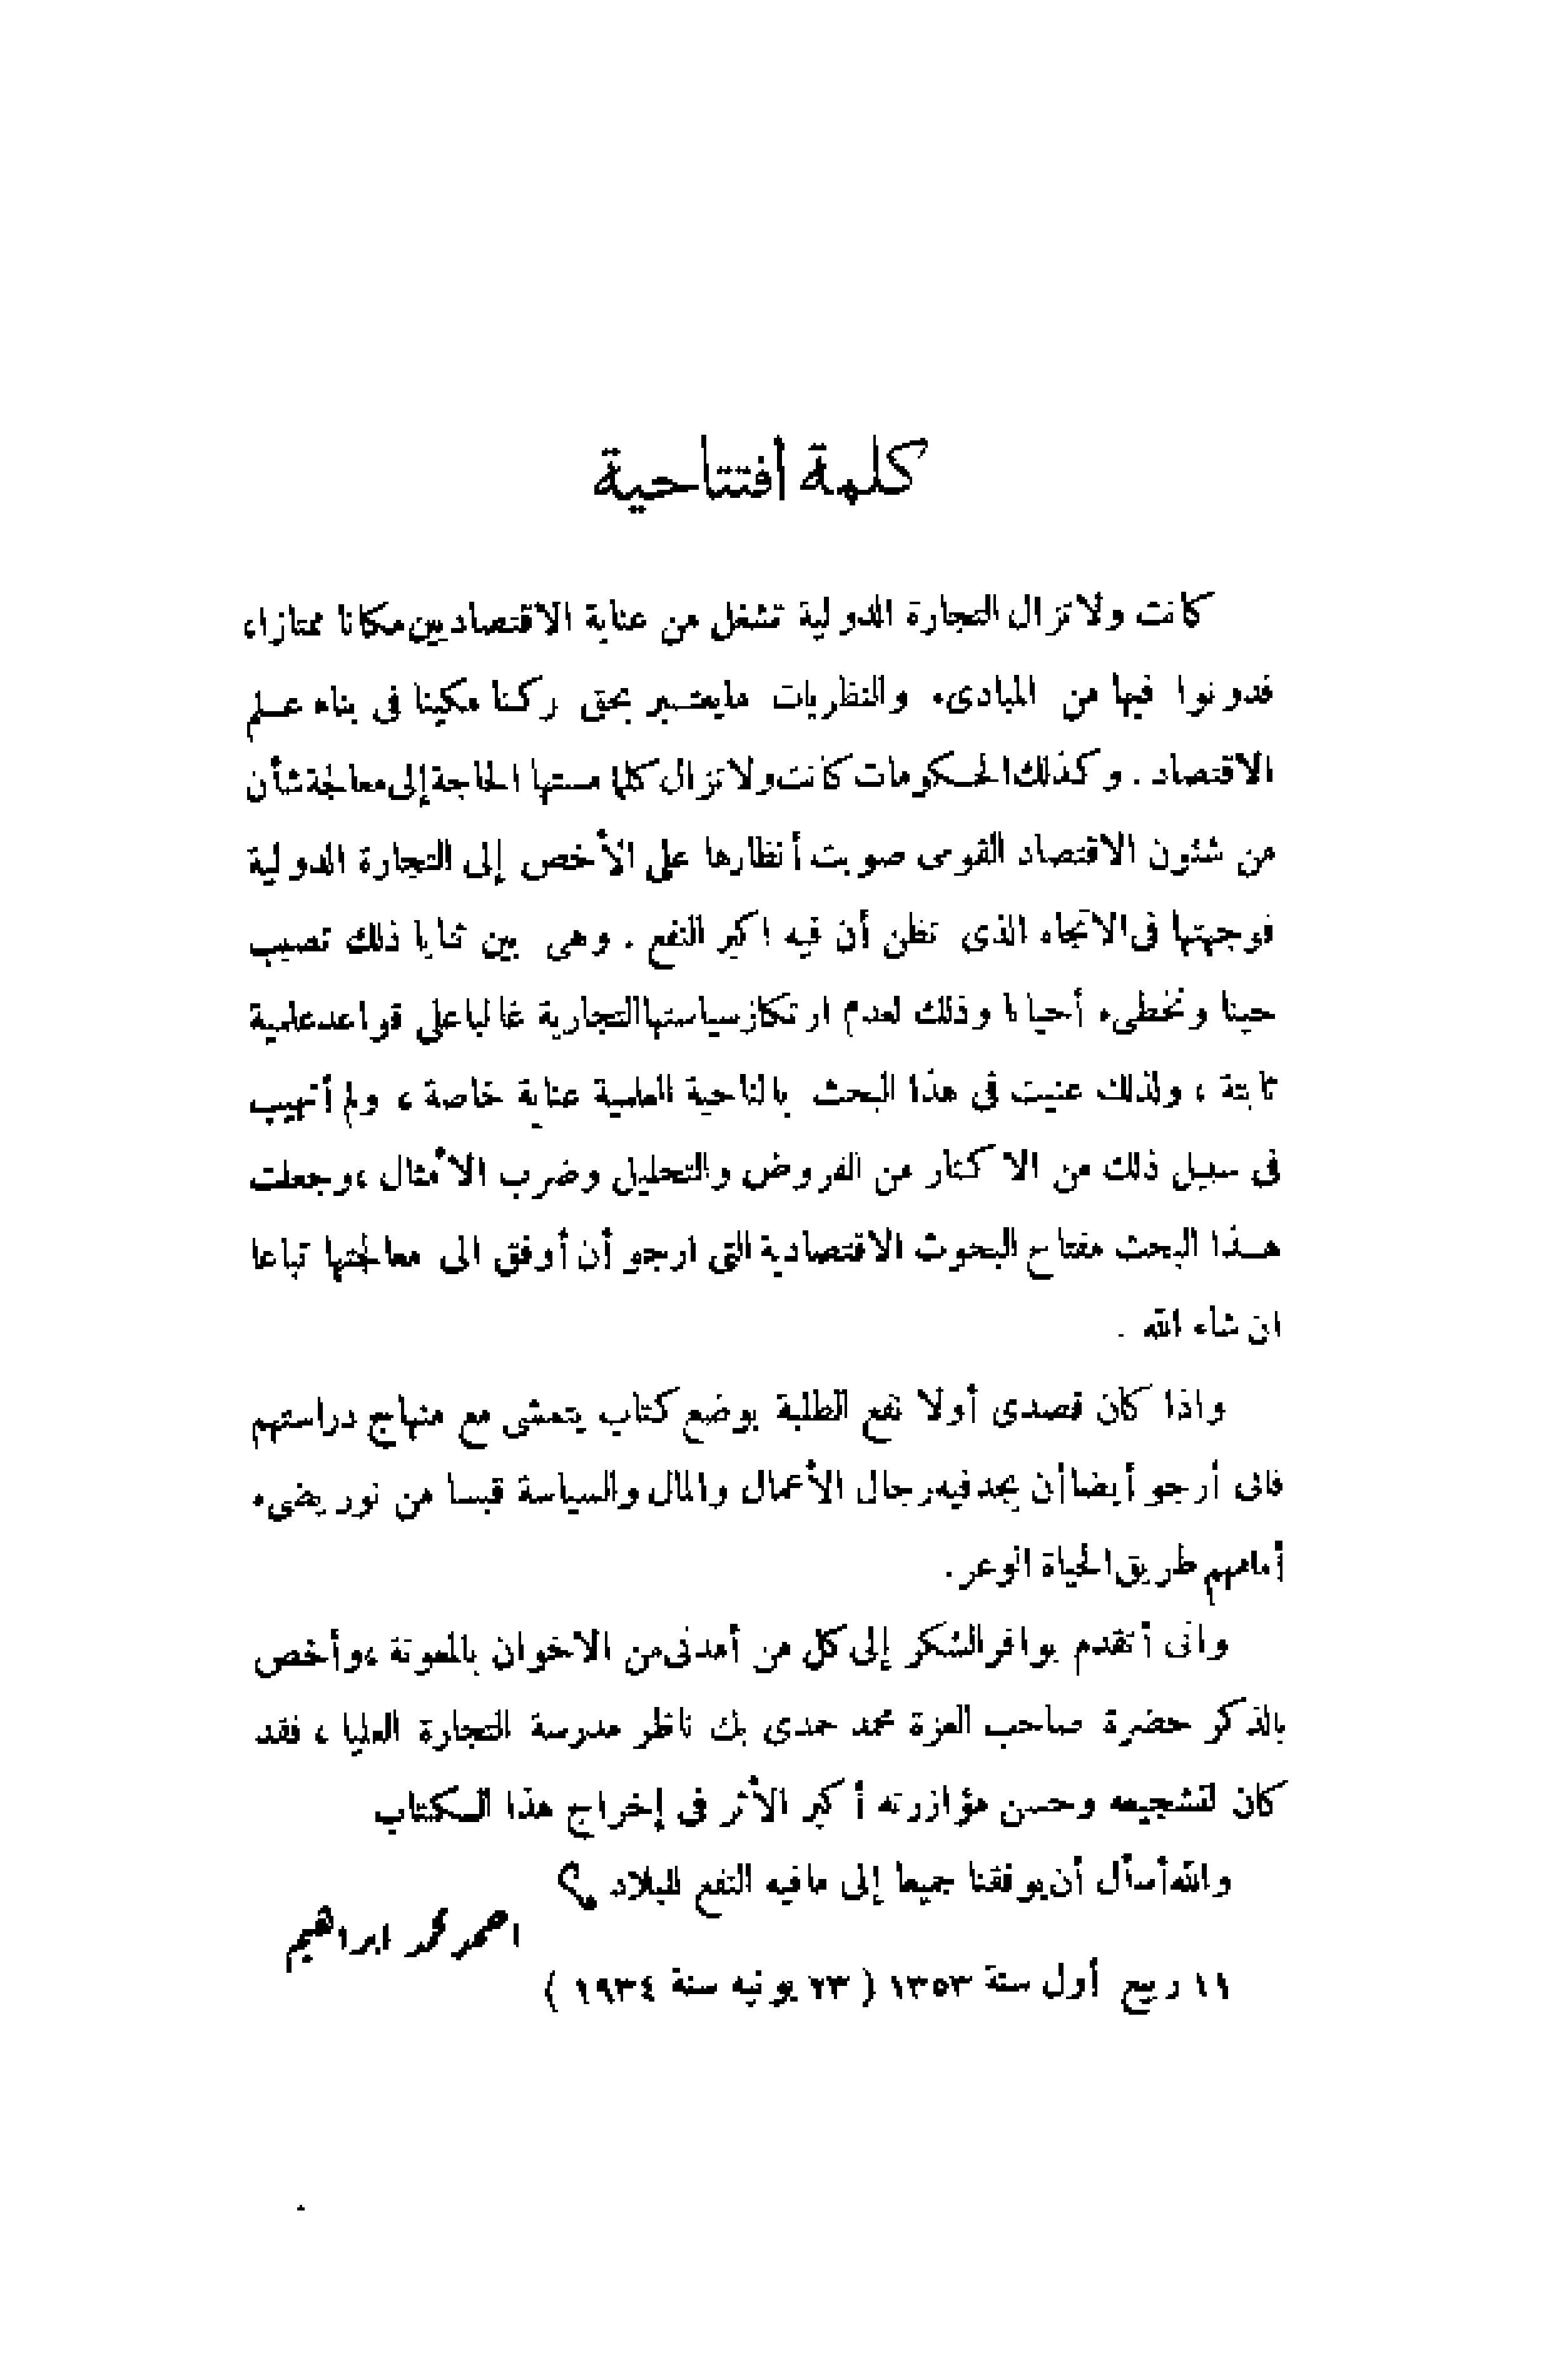 كلمة افتتاحية
كانت ولا تزال التجارة الدولية تشغل من عناية الاقتصاديين مكانا ممتازا،
فدونوا فيها من المبادىء والنظريات ما يعتبر بحق ركنا مكينا فى بناء علم
الاقتصاد . وكذلك الحكومات كانت ولا تزال كلما مستها الحاجة إلى معالجة شأن
من شئون الاقتصاد القومى صوبت أنظارها على الأخص إلى التجارة الدولية
فوجهتها فى الاتجاه الذى تظن أن فيه اكبر النفع . وهى بين ثنايا ذلك تصيب
حينا وتخطىء أحيانا وذلك لعدم ارتكاز سياستها التجارية غالبا على قواعد علمية
ثابتة ، ولذلك عنيت فى هذا البحث بالناحية العلمية عناية خاصة ، ولم أتهيب
فى سبيل ذلك من الاكثار من الفروض والتحليل وضرب الأمثال ، وجعلت
هذا البحث مفتاح البحوث الاقتصادية التى ارجو أن أوفق الى معالجتها تباعا
ان شاء الله .
واذا كان قصدى أولا نفع الطلبة بوضع كتاب يتمشى مع منهاج دراستهم
فانى أرجو أيضا أن يجد فيه رجال الأعمال والمال والسياسة قبسا من نور يضىء
أمامهم طريق الحياة الوعر .
وانى أتقدم بوافر الشكر إلى كل من أمدنى من الاخوان بالمعونة ، وأخص
بالذكر حضرة صاحب العزة محمد حمدى بك ناظر مدرسة التجارة العليا ، فقد
كان لتشجيعه وحسن مؤازرته أكبر الأثر فى إخراج هذا الكتاب
والله أسأل أن يوفقنا جميعا إلى ما فيه النفع للبلاد
احمد محمد ابراهيم
١١ ربيع أول سنة ١٣٥٣ ( ٢٣ يونيه سنة ١٩٣٤ )